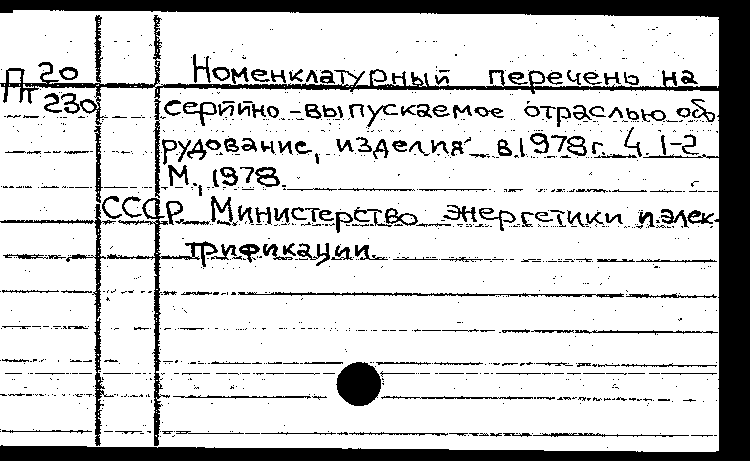 Пт 20 Номенклатурный перечень на
230 серийно-выпускаемое отраслью обо
рудование, изделия в 1978г. Ч. 1-2
М., 1978.
СССР Министерство энергетики и элек-
трификации.